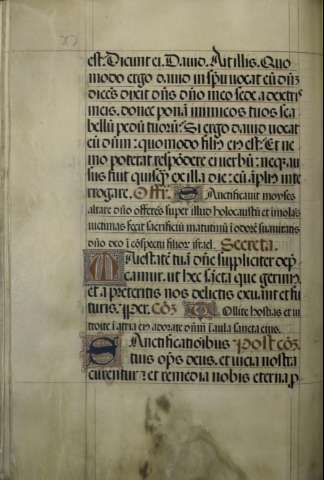 est. Dicunt ei. Dauid. Ait illis. Quo
modo ergo dauid in spū uocat eū dn̄z
dicēs dixit dn̄s dn̄o meo sede a dextris
meis. donec ponā inimicos tuos sca
bellū pedū tuoꝝ? Si ergo dauid uocat
eū dn̄m: quomodo filiꝰ eiꝰ est? Et ne
mo poterat respōdere ei uerbū: neqꝫ au
sus fuit quisqꝫ ex illa die: eū āpliꝰ inte
rrogare. Offr̄. Sanctificauit moyses
altare dn̄o offerēs super illud holocausta et imolās
uictimas: fecit sacrificiū matutinū ī odorē suauitatis
dn̄o deo ī cōspectu filioꝝ isrl̄ael. Secreta.
Maiestatē tuā dn̄e suppliciter dep̄
camur. ut hec sācta que gerimꝰ
et a preteritis nos delictis exuāt et fu
turis. Per. Cōz. Tollite hostias et in
troite ī atria eiꝰ adorate dn̄m ī aula sancta eius.
Sanctificationibus Post cōz.
tuis op̄s deus. et uicia nostra
curentur ⁊ et remedia nobis eterna ꝓ